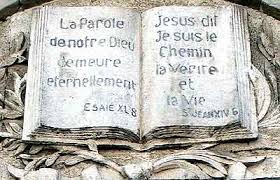 La Parole
de notre Dieu
demeure
eternellement
ESAIE XL 8
Jesus dit
Je suis le
Chemin
la Verite
et
la Vie
St JEAN XIV 6